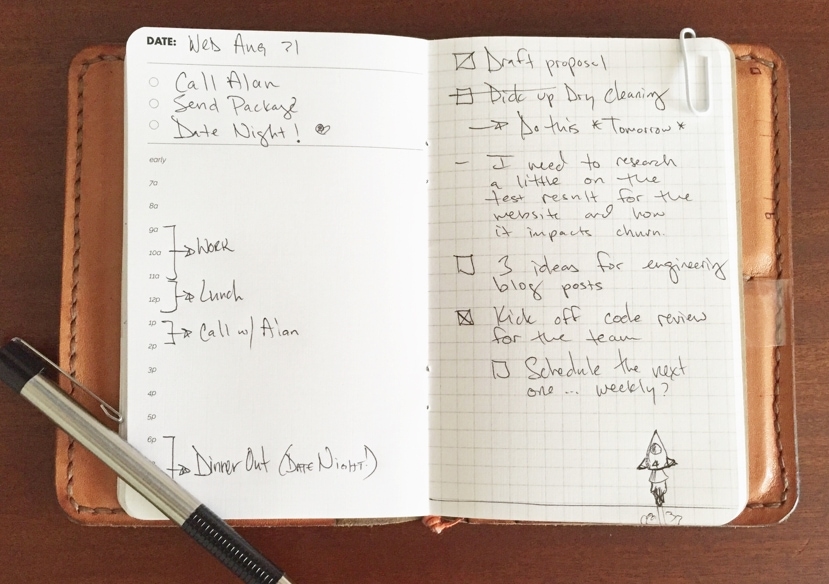 DATE: Wed Aug 31
Call Alan
Send Package
Date Night!
early
7a
8a
9a
10a
11a
12p
1p
2p
3p
4p
5p
6p
Work
Lunch
Call w/ Alan
Dinner Out (Date Night!)
Draft proposal
Pick up Dry Cleaning
→ Do this *Tomorrow*
- I need to research
a little on the
test result for the
website and how
it impacts churn.
3 ideas for engineering
blog posts
Kick off code review
for the team
Schedule the next
one ... weekly?